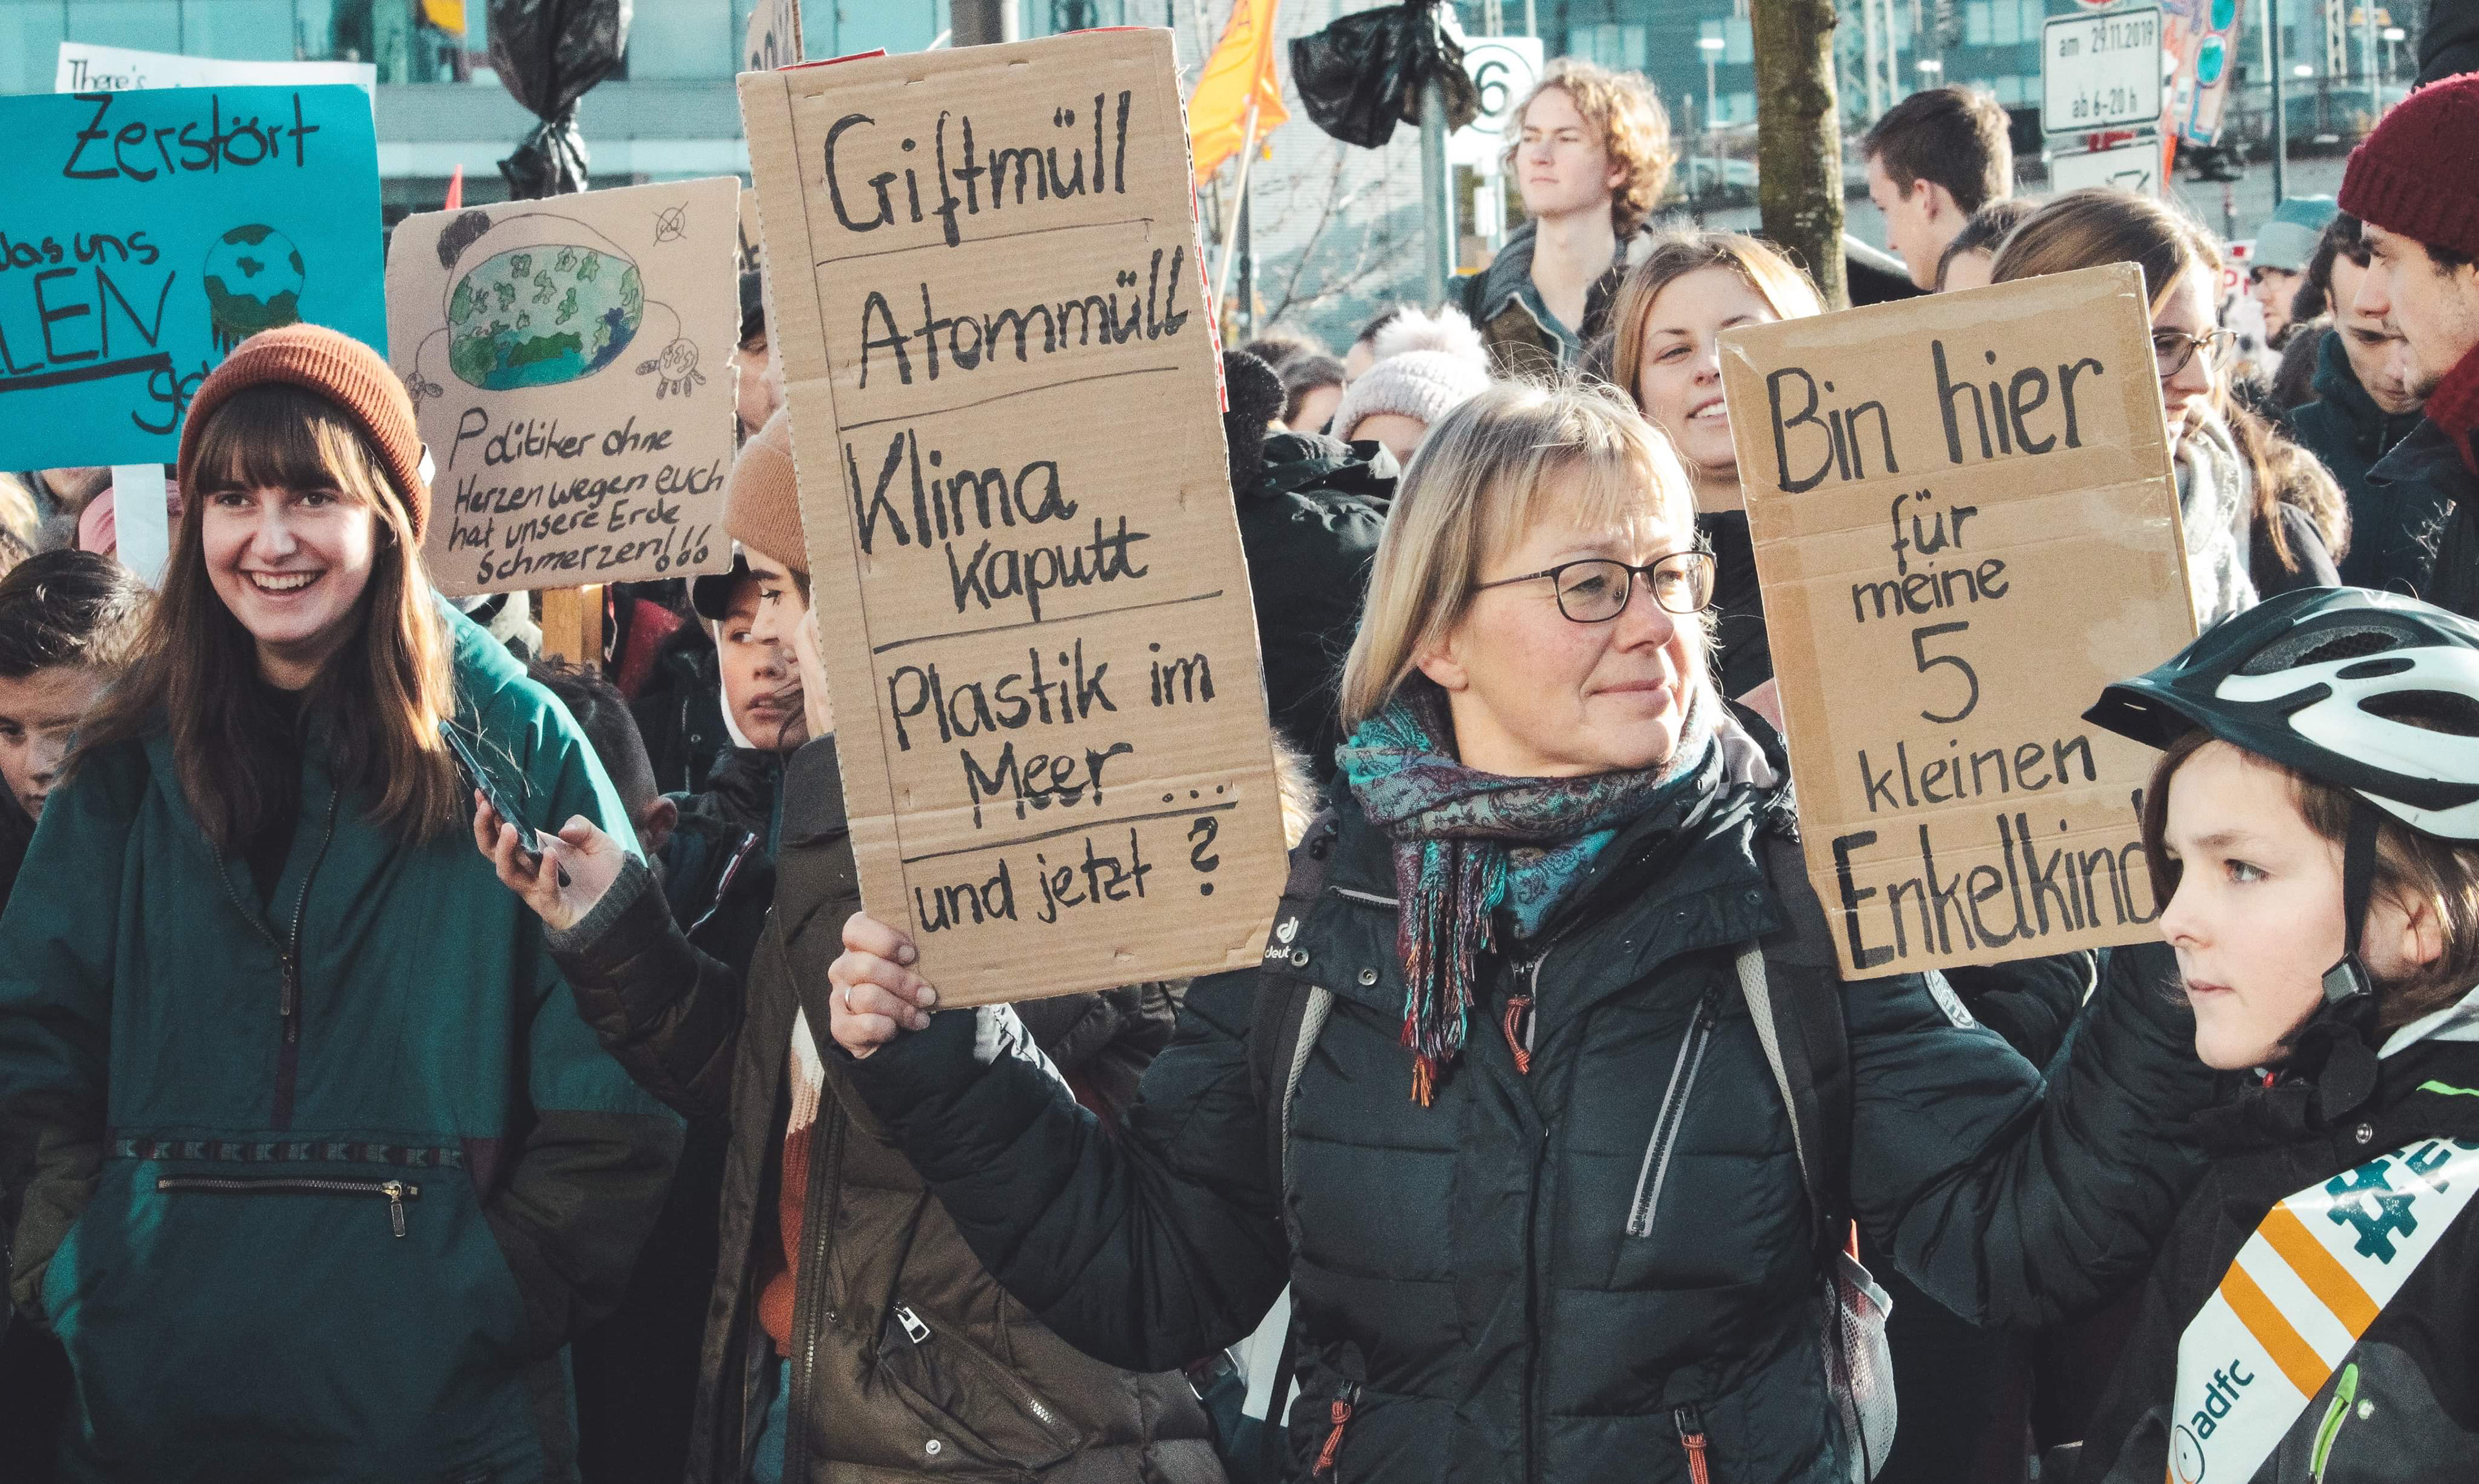 There's
Zerstört
das uns
Politiker ohne
Herzen wegen euch
hat unsere Erde
Schmerzen!!!
Giftmüll
Atommüll
Klima
kaputt
Plastik im
Meer ...
und jetzt ?
6
am 29.11.2019
ab 6-20 h
Bin hier
für
meine
5
kleinen
Enkelkind
deut
adfc